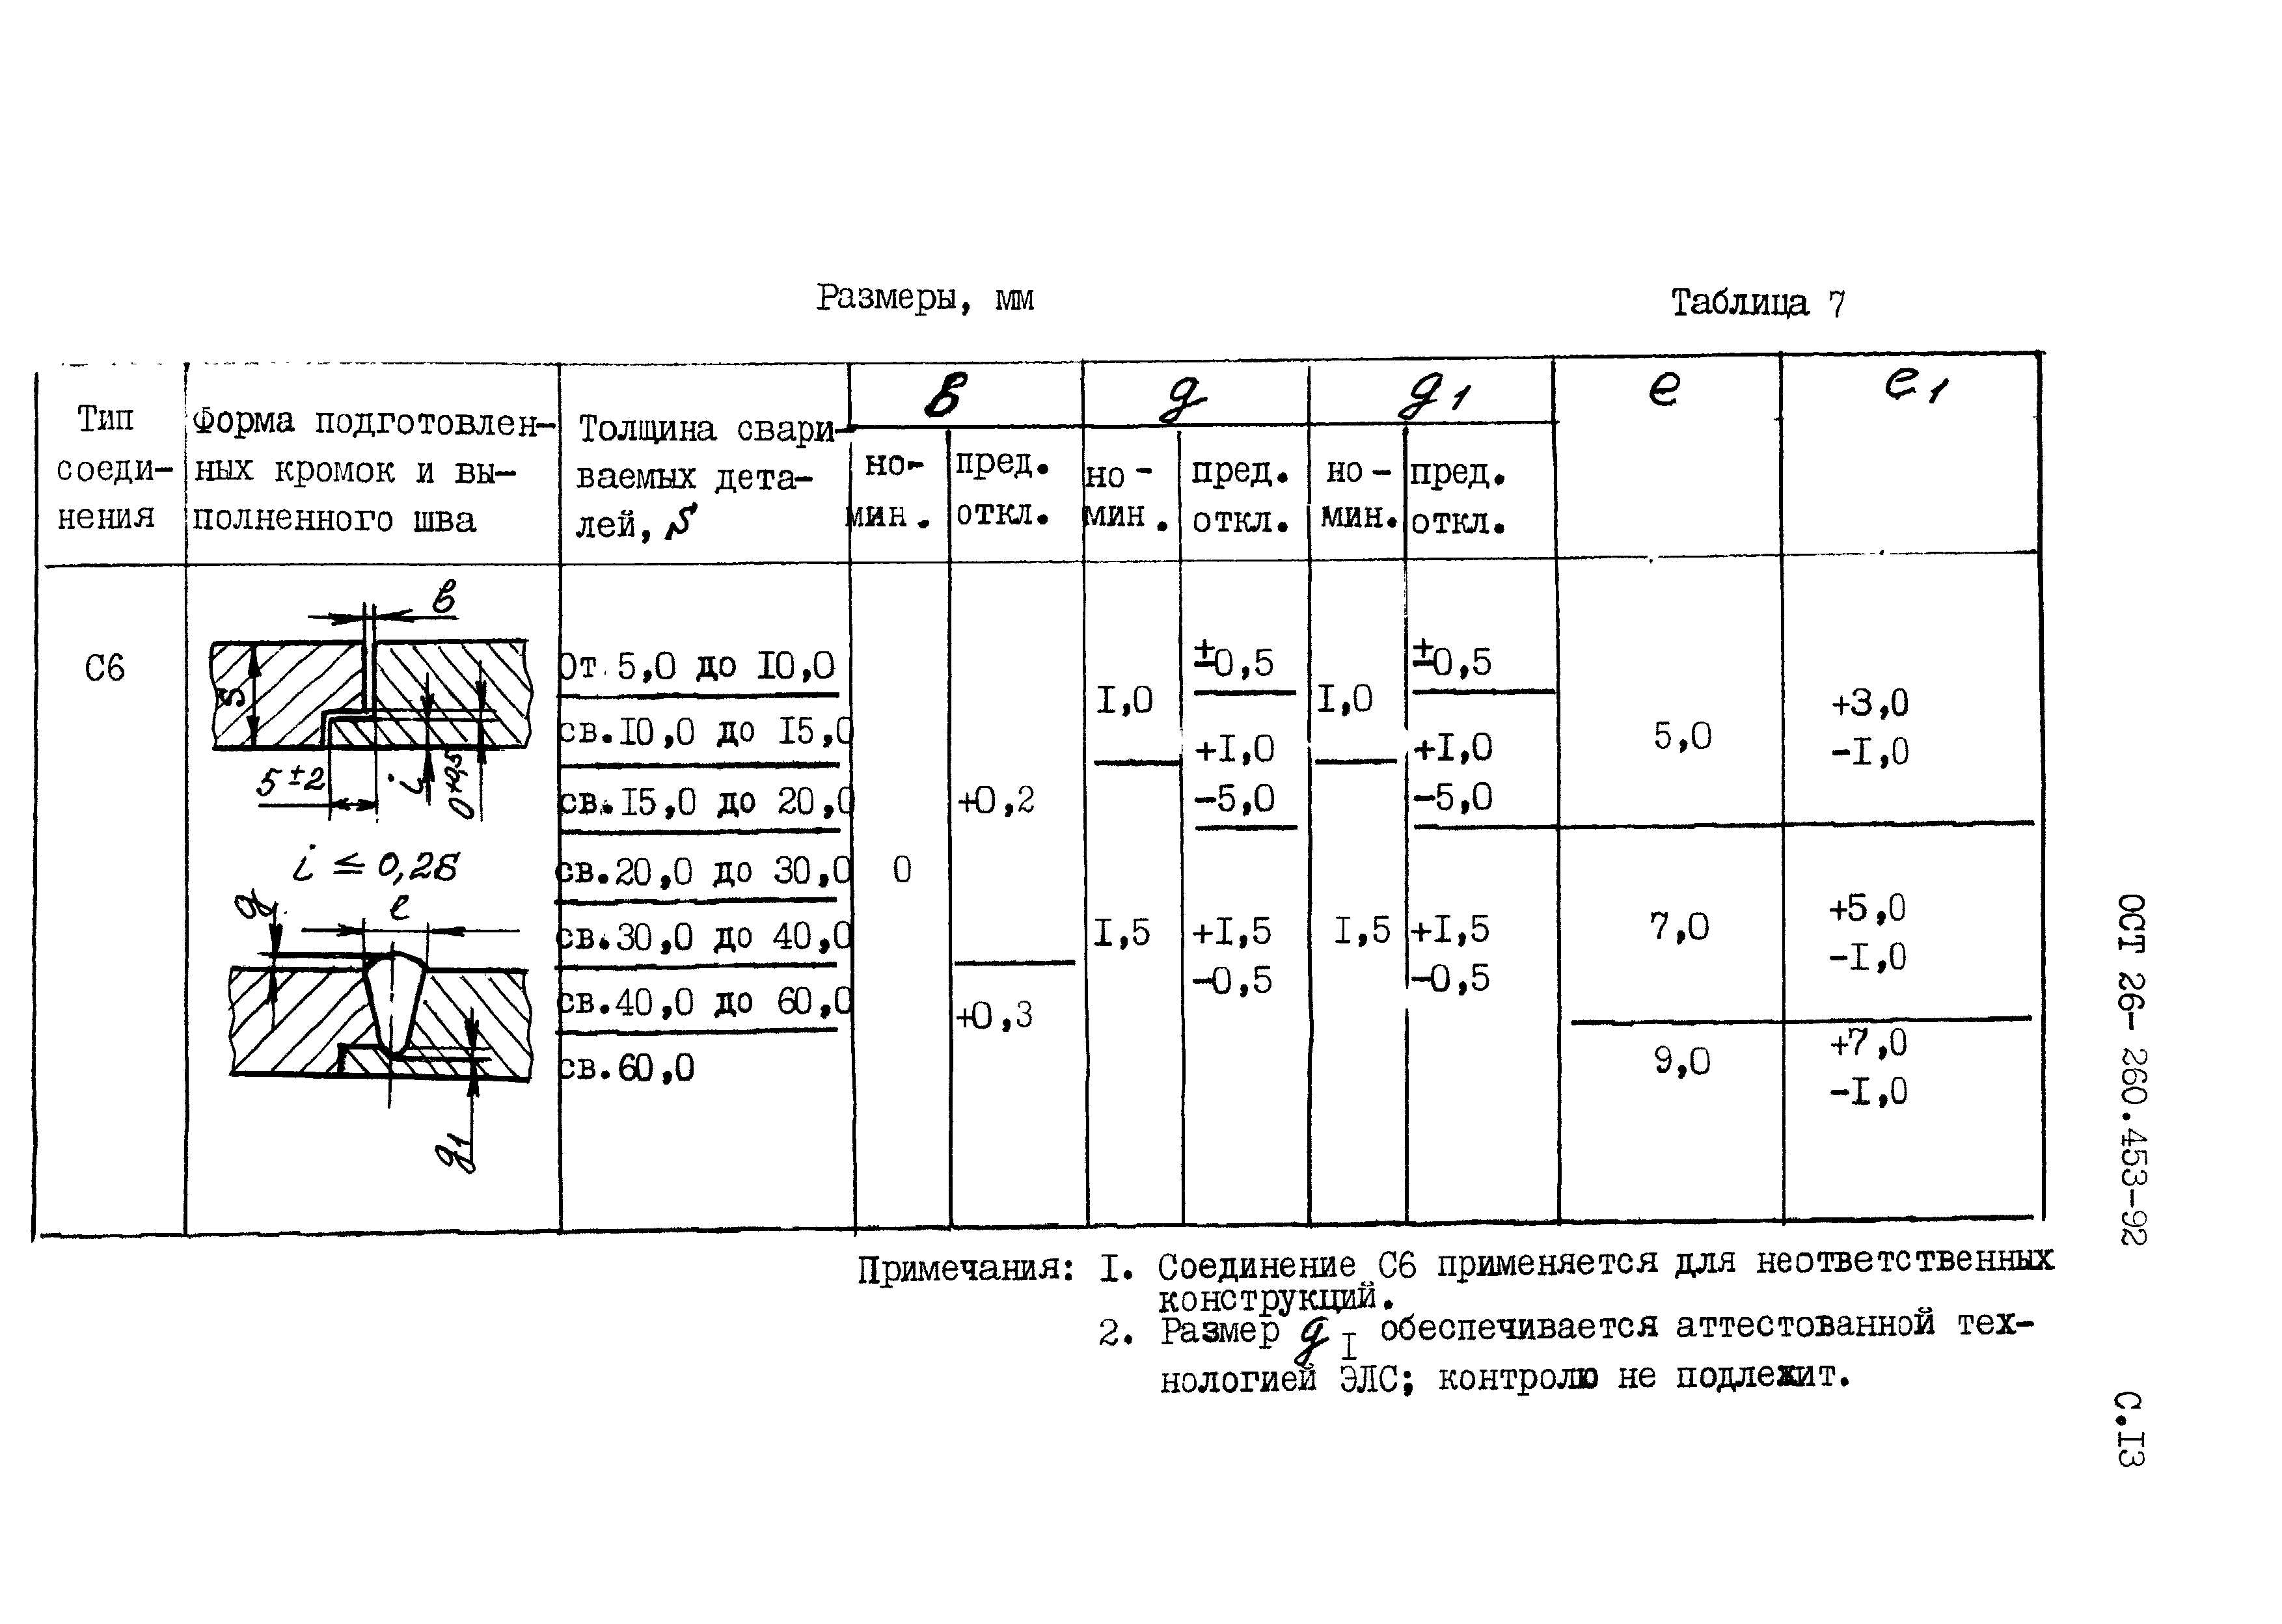 Размеры, мм
Таблица 7
Тип
соеди-
нения
Форма подготовлен-
ных кромок и вы-
полненного шва
Толщина свари-
ваемых дета-
лей, S
в
но-
мин.
пред.
откл.
g
но-
мин.
пред.
откл.
g1
но-
мин.
пред.
откл.
e
e1
С6
в
S
5±2
i
0+0,5
i ≤ 0,2S
g
e
g1
От 5,0 до I0,0
св.I0,0 до I5,0
св.I5,0 до 20,0
св.20,0 до 30,0
св.30,0 до 40,0
св.40,0 до 60,0
св.60,0
0
+0,2
+0,3
I,0
I,5
±0,5
+I,0
-5,0
+I,5
-0,5
I,0
I,5
±0,5
+I,0
-5,0
+I,5
-0,5
5,0
7,0
9,0
+3,0
-I,0
+5,0
-I,0
+7,0
-I,0
Примечания: I. Соединение С6 применяется для неответственных
конструкций.
2. Размер gI обеспечивается аттестованной тех-
нологией ЭЛС; контролю не подлежит.
ОСТ 26-260.453-92
С.I3